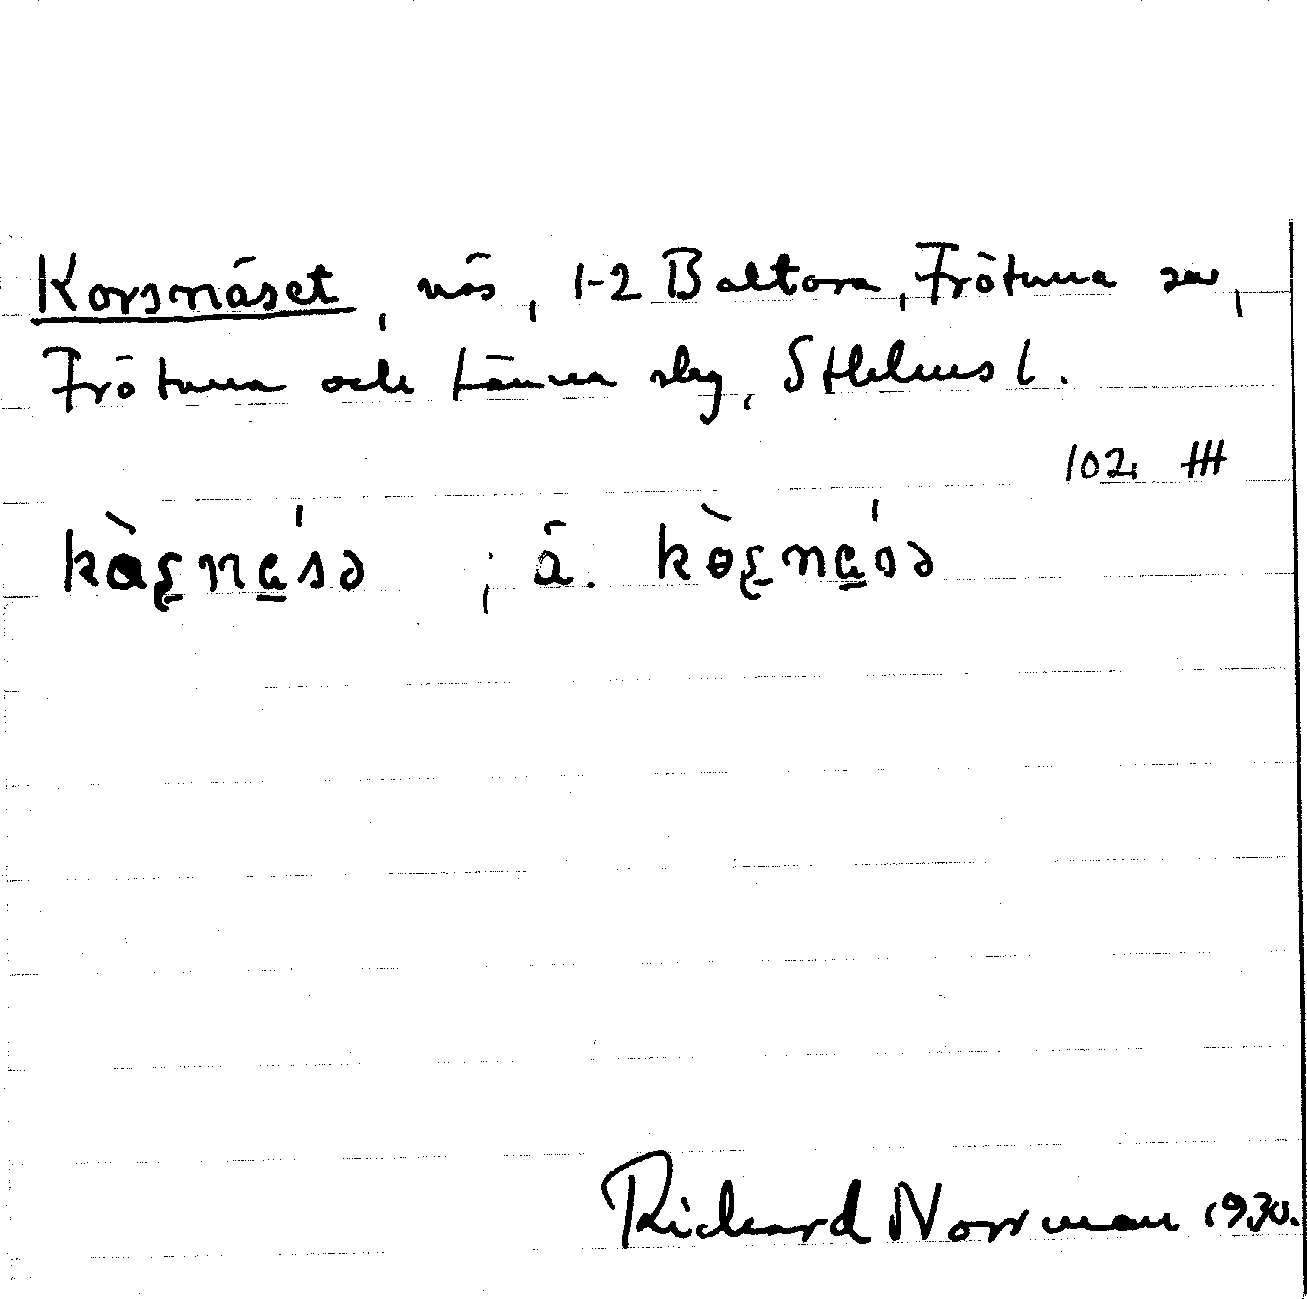 Korsnäset, näs, 1-2 Baltora, Frötuna sn,
Frötuna och Länna slg, Sthlms l.
102,
; ä.
Richard Norrman 1930.